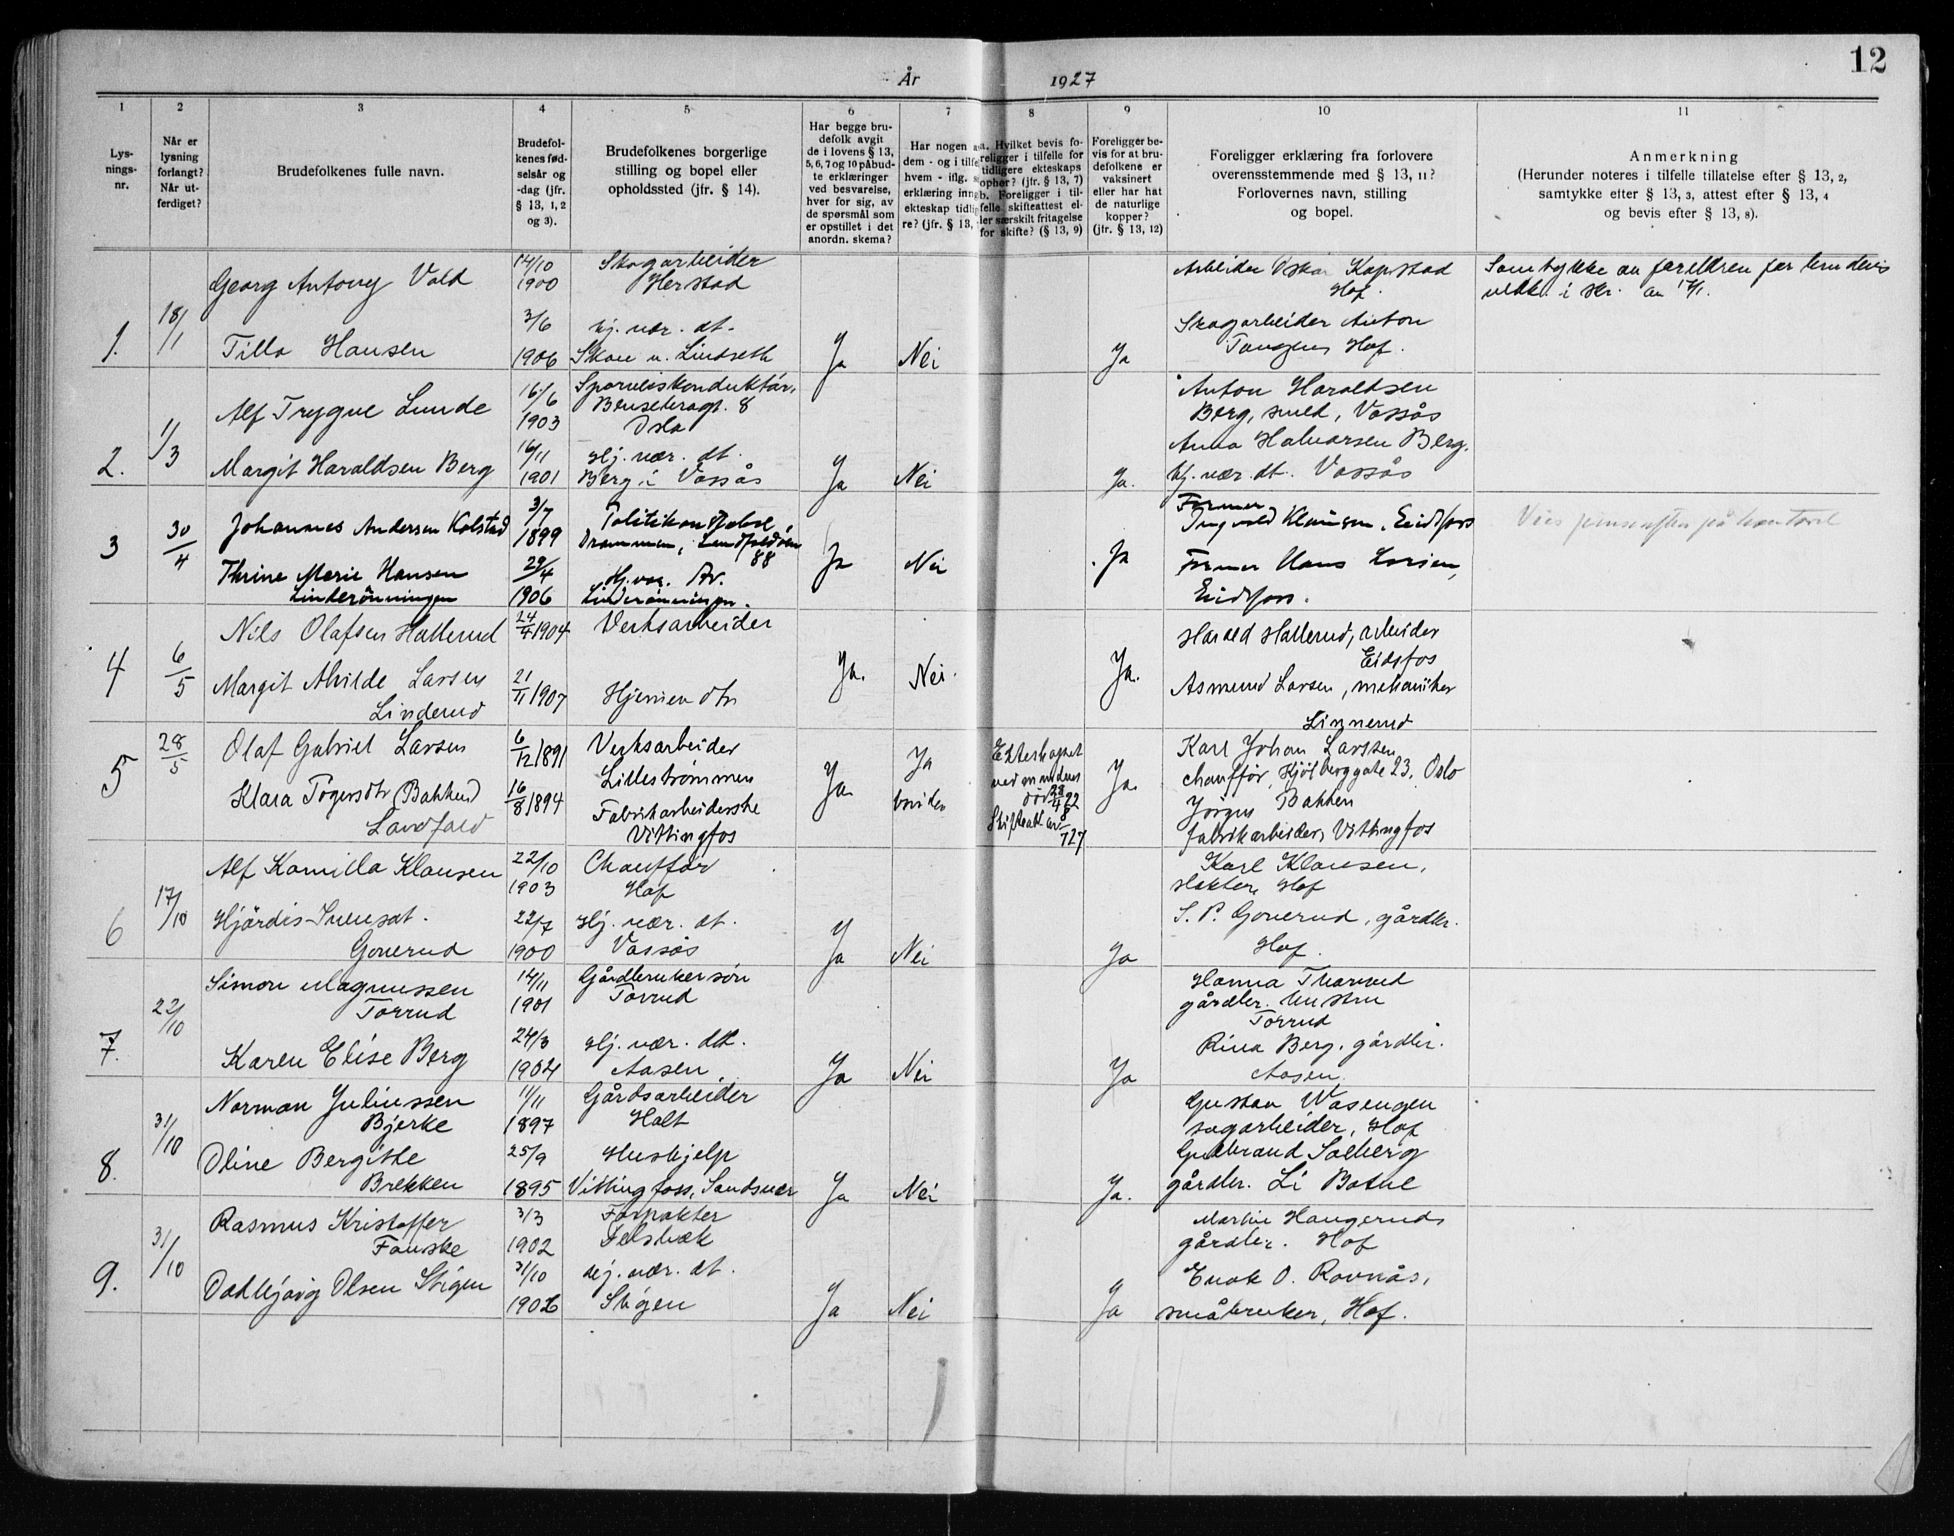 12
År 1927
1 2 3 4 5 6 7 8 9 10 11
Lys-
nings-
nr.
Når er
lysning
forlangt?
Når ut-
ferdiget?
Brudefolkenes fulle navn.
Brudefol-
kenes fød-
selsår og
-dag (jfr.
§ 13, 1, 2
og 3).
Brudefolkenes borgerlige
stilling og bopel eller
opholdssted (jfr. § 14).
Har begge bru-
defolk avgit
de i lovens § 13,
5, 6, 7 og 10 påbud-
te erklæringer
ved besvarelse,
hver for sig, av
de spørsmål som
er opstillet i det
anordn. skema?
Har nogen a
dem - og i tilfe
hvem - iflg. s
erklæring inng
ekteskap tidlig
re? (jfr. § 13,
a. Hvilket bevis fo-
religger i tilfelle for
tidligere ekteskaps
ophør? (jfr. § 13, 7)
b. Foreligger i til-
felle skifteattest el-
ler særskilt fritagelse
for skifte? (§ 13, 9)
Foreligger be-
vis for at bru-
defolkene er
vaksinert
eller har hat
de naturlige
kopper?
(jfr. § 13, 12)
Foreligger erklæring fra forlovere
overensstemmende med § 13, 11?
Forlovernes navn, stilling
og bopel.
Anmerkning
(Herunder noteres i tilfelle tillatelse efter § 13, 2,
samtykke efter § 13, 3, attest efter § 13, 4
og bevis efter § 13, 8).
1. 18/1
Georg Antony Vold
14/10 1900
Skogarbeider
Herstad
Tilla Hansen
3/6 1906
hj. vær. dt.
Skau u. Lindseth
Ja Nei Ja
Arbeider Oskar Kopstad
Hof.
Skogarbeider Anton
Tangen, Hof.
Samtykke av foreldren for brudens
vedk. i skr. av
2. 1/3
Alf Trygve Lunde
16/6 1903
Sporveiskonduktør,
8
Oslo
Margit Haraldsen Berg
16/11 1901
Hj. vær. dt.
Berg i Vassås
Ja Nei Ja.
Anton Haraldsen
Berg, smed, Vassås
Anna Halvorsen Berg.
hj. vær. dt. Vassås
3 30/4
Johannes Andersen Kolstad
3/7 1899
Politikonstabel
Drammen,
88
Thrine Marie Hansen
Linderönningen
29/4 1906
Hj. vær. dt.
Linderönningen.
Ja Nei Ja
Former
Ingvald Klausen, Eidsfoss
Former Hans Larsen,
Eidsfoss.
Vies på kontoret
4 6/5
Nils Olafsen Hallerud
24/4 1904
Verksarbeider
Margit Alvilde Larsen
Linderud
21/11 1907
Hjemmedtr
Ja. Nei. Ja.
Harald Hallerud, arbeider
Eidsfos
Asmund Larsen, mekaniker
Linnerud
5 28/5
Olaf Gabriel Larsen
6/12 1891
Verksarbeider
Lillestrømmen
Klara Torgersdtr Bakkerud
Landfald
16/8 1894
Fabrikarbeiderske
Vittingfos
Ja. Ja
bruden
Ekteskapet
ved mandens
død 28/4 22
Skifteatt av 8/7 27
Ja.
Karl Johan Larsen
chauffør, Kjølberggate 23, Oslo
Jörgen Bakken
fabrikarbeider, Vittingfos
6 17/10
Alf Kamillo Klausen
22/10 1903
Chauffør
Hof
Hjördis
Goverud
22/7 1900
Hj. vær. dt.
Vassås
Ja Nei Ja
Karl Klausen,
slakter, Hof
S. P. Goverud, gårdbr.
Hof.
7. 22/10
Simon Magnussen
Torrud
14/11 1901
Gårdbrukersøn
Torrud
Karen Elise Berg
24/3 1904
Hj. vær. dt.
Aasen.
Ja Nei Ja
Hanna Thorrud
gårdbr. hustru
Torrud
Rina Berg, gårdbr.
Aasen.
8. 31/10
Norman Juliussen
Bjerke
11/11 1897
Gårdsarbeider
Holt
Oline Bergitte
Brekken
25/9 1895
Hushjelp
Vittingfoss, Sandsvær
Ja Nei Ja.
Gustav Wasengen
sagarbeider, Hof
Gudbrand Solberg
gårdbr. Li Botne
9. 31/10
Rasmus Kristoffer
Fauske
3/3 1902
Forpakter
Oddbjørg Olsen Stigen
31/10 1906
Hj. vær. dt.
Stigen
Ja Nei Ja
Martin Haugerud
gårdbr. Hof
Enok O. Ravnås,
småbruker, Hof.